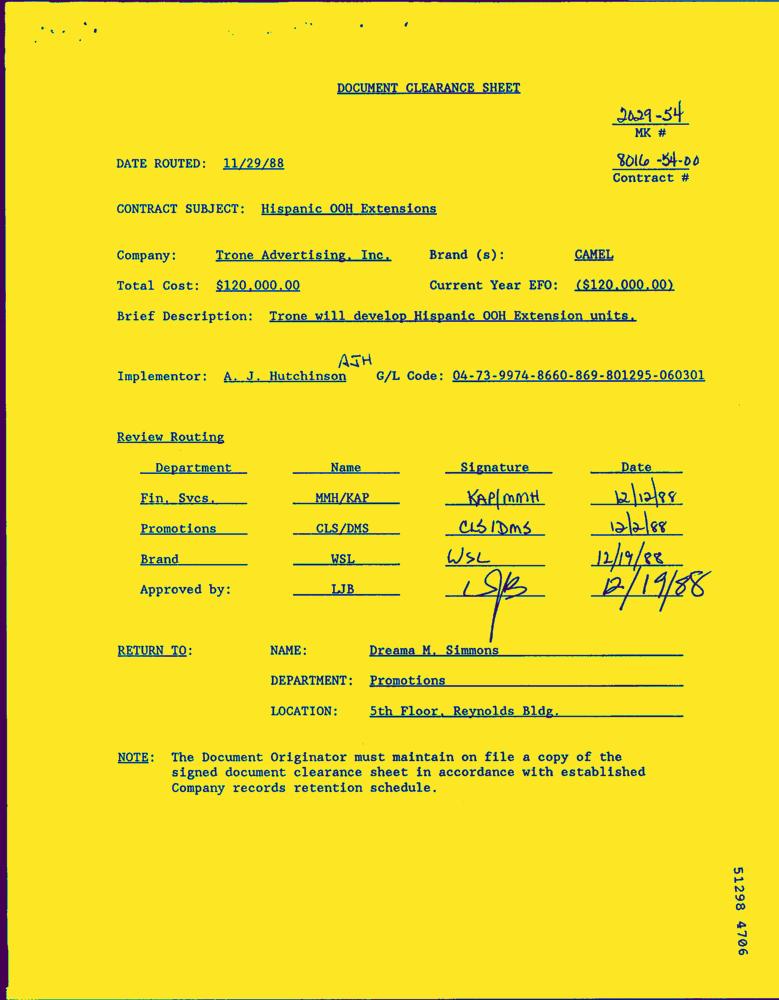 DOCUMENT CLEARANCE SHEET
2029-54
MK #
DATE ROUTED: 11/29/88
8016-54-00
Contract #
CONTRACT SUBJECT: Hispanic OOH Extensions
Company: Trone Advertising, Inc. Brand (s): CAMEL
Total Cost: $120,000.00 Current Year EFO: ($120,000.00)
Brief Description: Trone will develop Hispanic OOH Extension units.
AJH
Implementor: A. J. Hutchinson G/L Code: 04-73-9974-8660-869-801295-060301
Review Routing
Department Name Signature Date
Fin. Svcs. MMH/KAP KAP/MMH 12/12/88
Promotions CLS/DMS CLS/DMS 12/2/88
Brand WSL WSL 12/19/88
Approved by: LJB LJB 12/19/88
RETURN TO: NAME: Dreama M. Simmons
DEPARTMENT: Promotions
LOCATION: 5th Floor, Reynolds Bldg.
NOTE: The Document Originator must maintain on file a copy of the
signed document clearance sheet in accordance with established
Company records retention schedule.
51298 4706